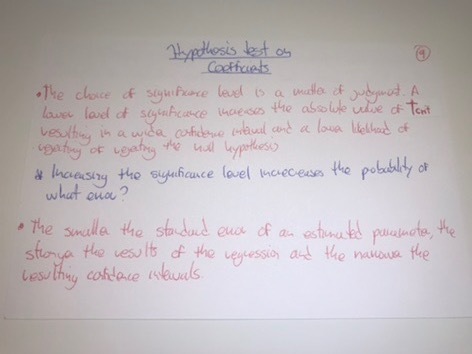 Hypothesis test on
Coefficients
9
• The choice of significance level is a matter of judgment. A
lower level of significance increases the absolute value of Tcrit
resulting in a wider confidence interval and a lower likelihood of
rejecting of rejecting the null hypothesis
* Increasing the significance level increases the probability of
what error?
• The smaller the standard error of an estimated parameter, the
stronger the results of the regression and the narrower the
resulting confidence intervals.